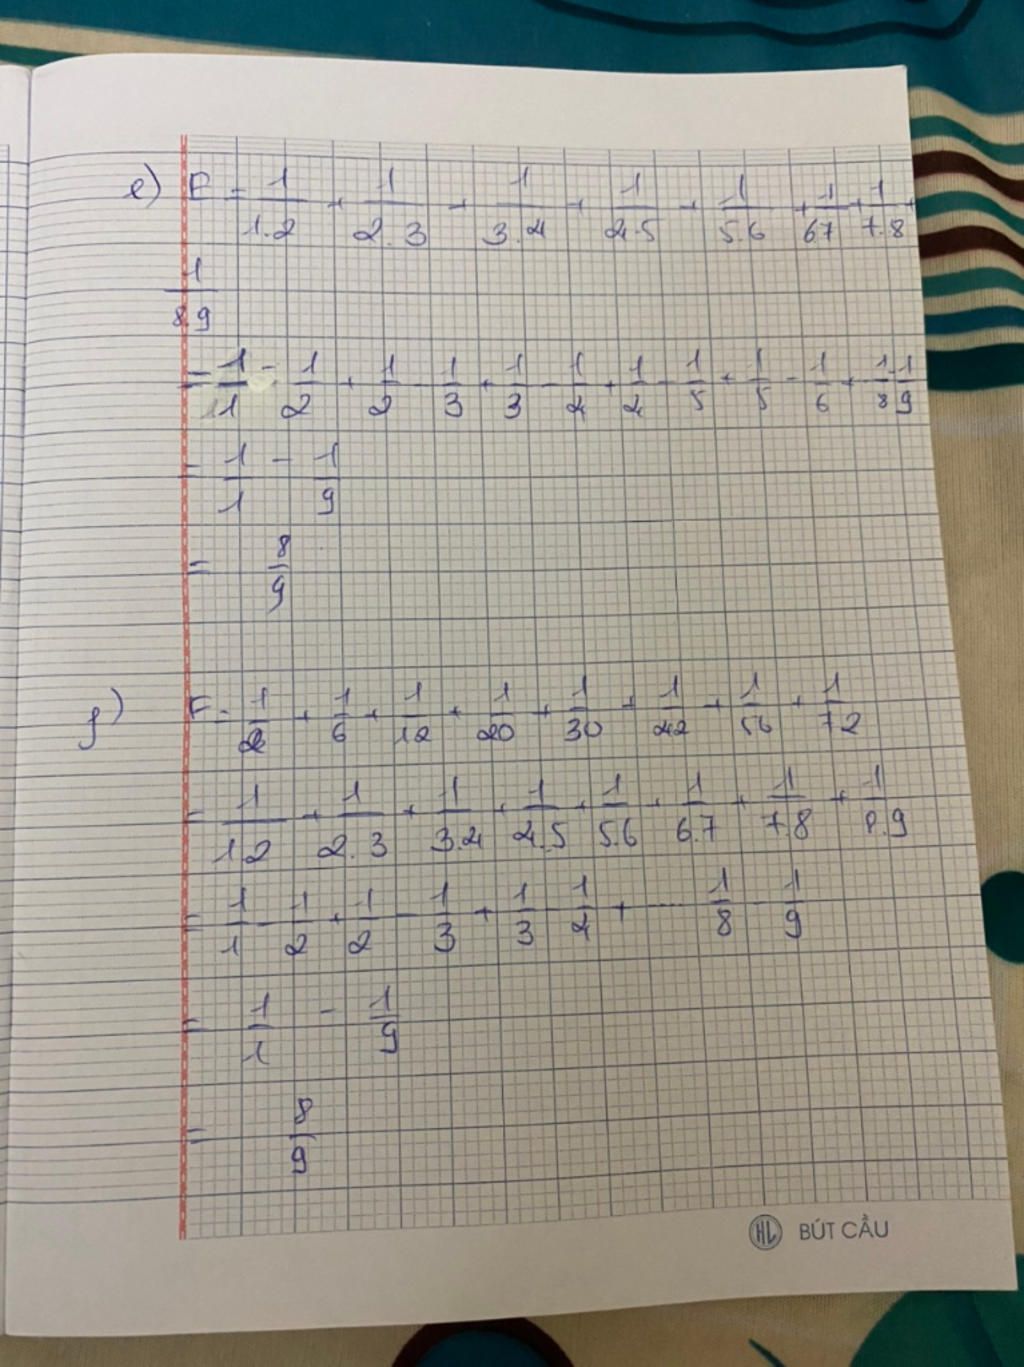 e) E = 1/1.2 + 1/2.3 + 1/3.4 + 1/4.5 + 1/5.6 + 1/67 + 1/7.8 +
1/8.9
= 1/1 - 1/2 + 1/2 - 1/3 + 1/3 - 1/4 + 1/4 - 1/5 + 1/5 - 1/6 + 1/8 - 1/9
= 1/1 - 1/9
= 8/9
f) F = 1/2 + 1/6 + 1/12 + 1/20 + 1/30 + 1/42 + 1/56 + 1/72
= 1/1.2 + 1/2.3 + 1/3.4 + 1/4.5 + 1/5.6 + 1/6.7 + 1/7.8 + 1/8.9
= 1/1 - 1/2 + 1/2 - 1/3 + 1/3 - 1/4 + - - - 1/8 - 1/9
= 1/1 - 1/9
= 8/9
HL BÚT CẦU